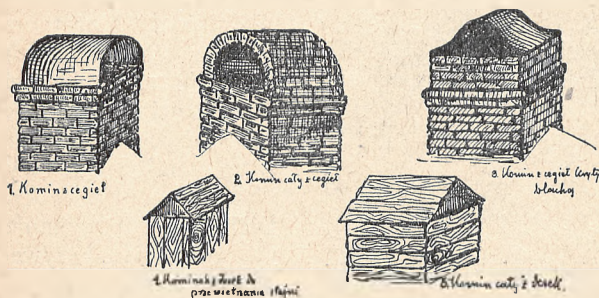 1. Komin z cegieł
2. Komin cały z cegieł
3. Komin z cegieł kryty
blachą
4. Kominek z desek do
przewietrzania stajni
5. Komin cały z desek.